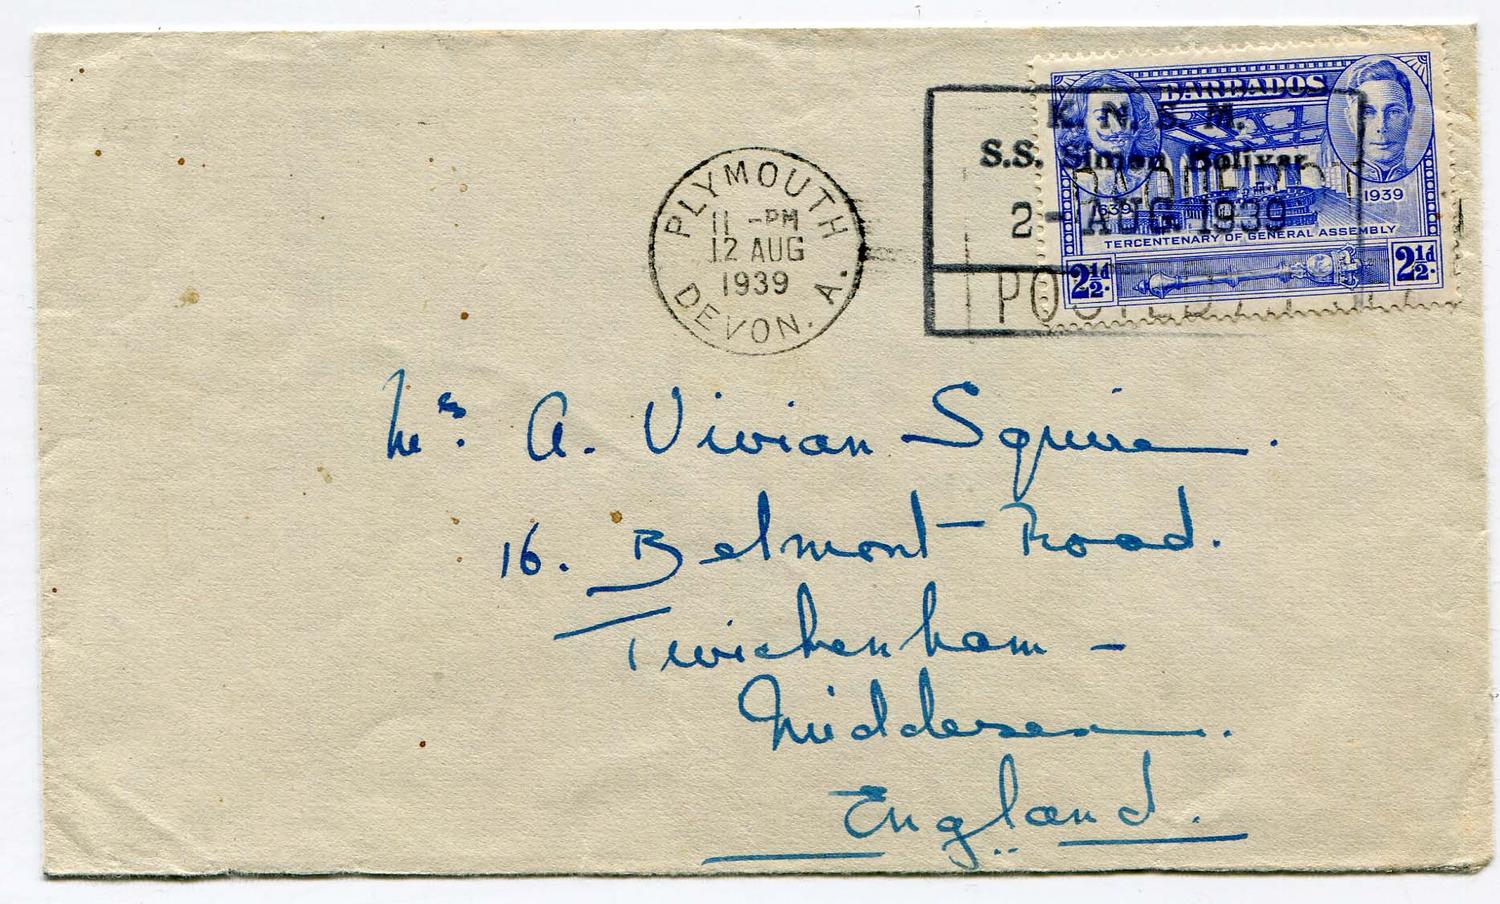 PLYMOUTH
11 -PM
12 AUG
1939
DEVON. A.
K. N. S. M.
S.S. Simon Bolivar
2 - AUG. 1939
BARBADOS
1639
1939
TERCENTENARY OF GENERAL ASSEMBLY
2½d.
2½d.
PAQUEBOT
Mrs. A. Vivian Squire.
16. Belmont Road.
Twickenham -
Middlesex.
England.